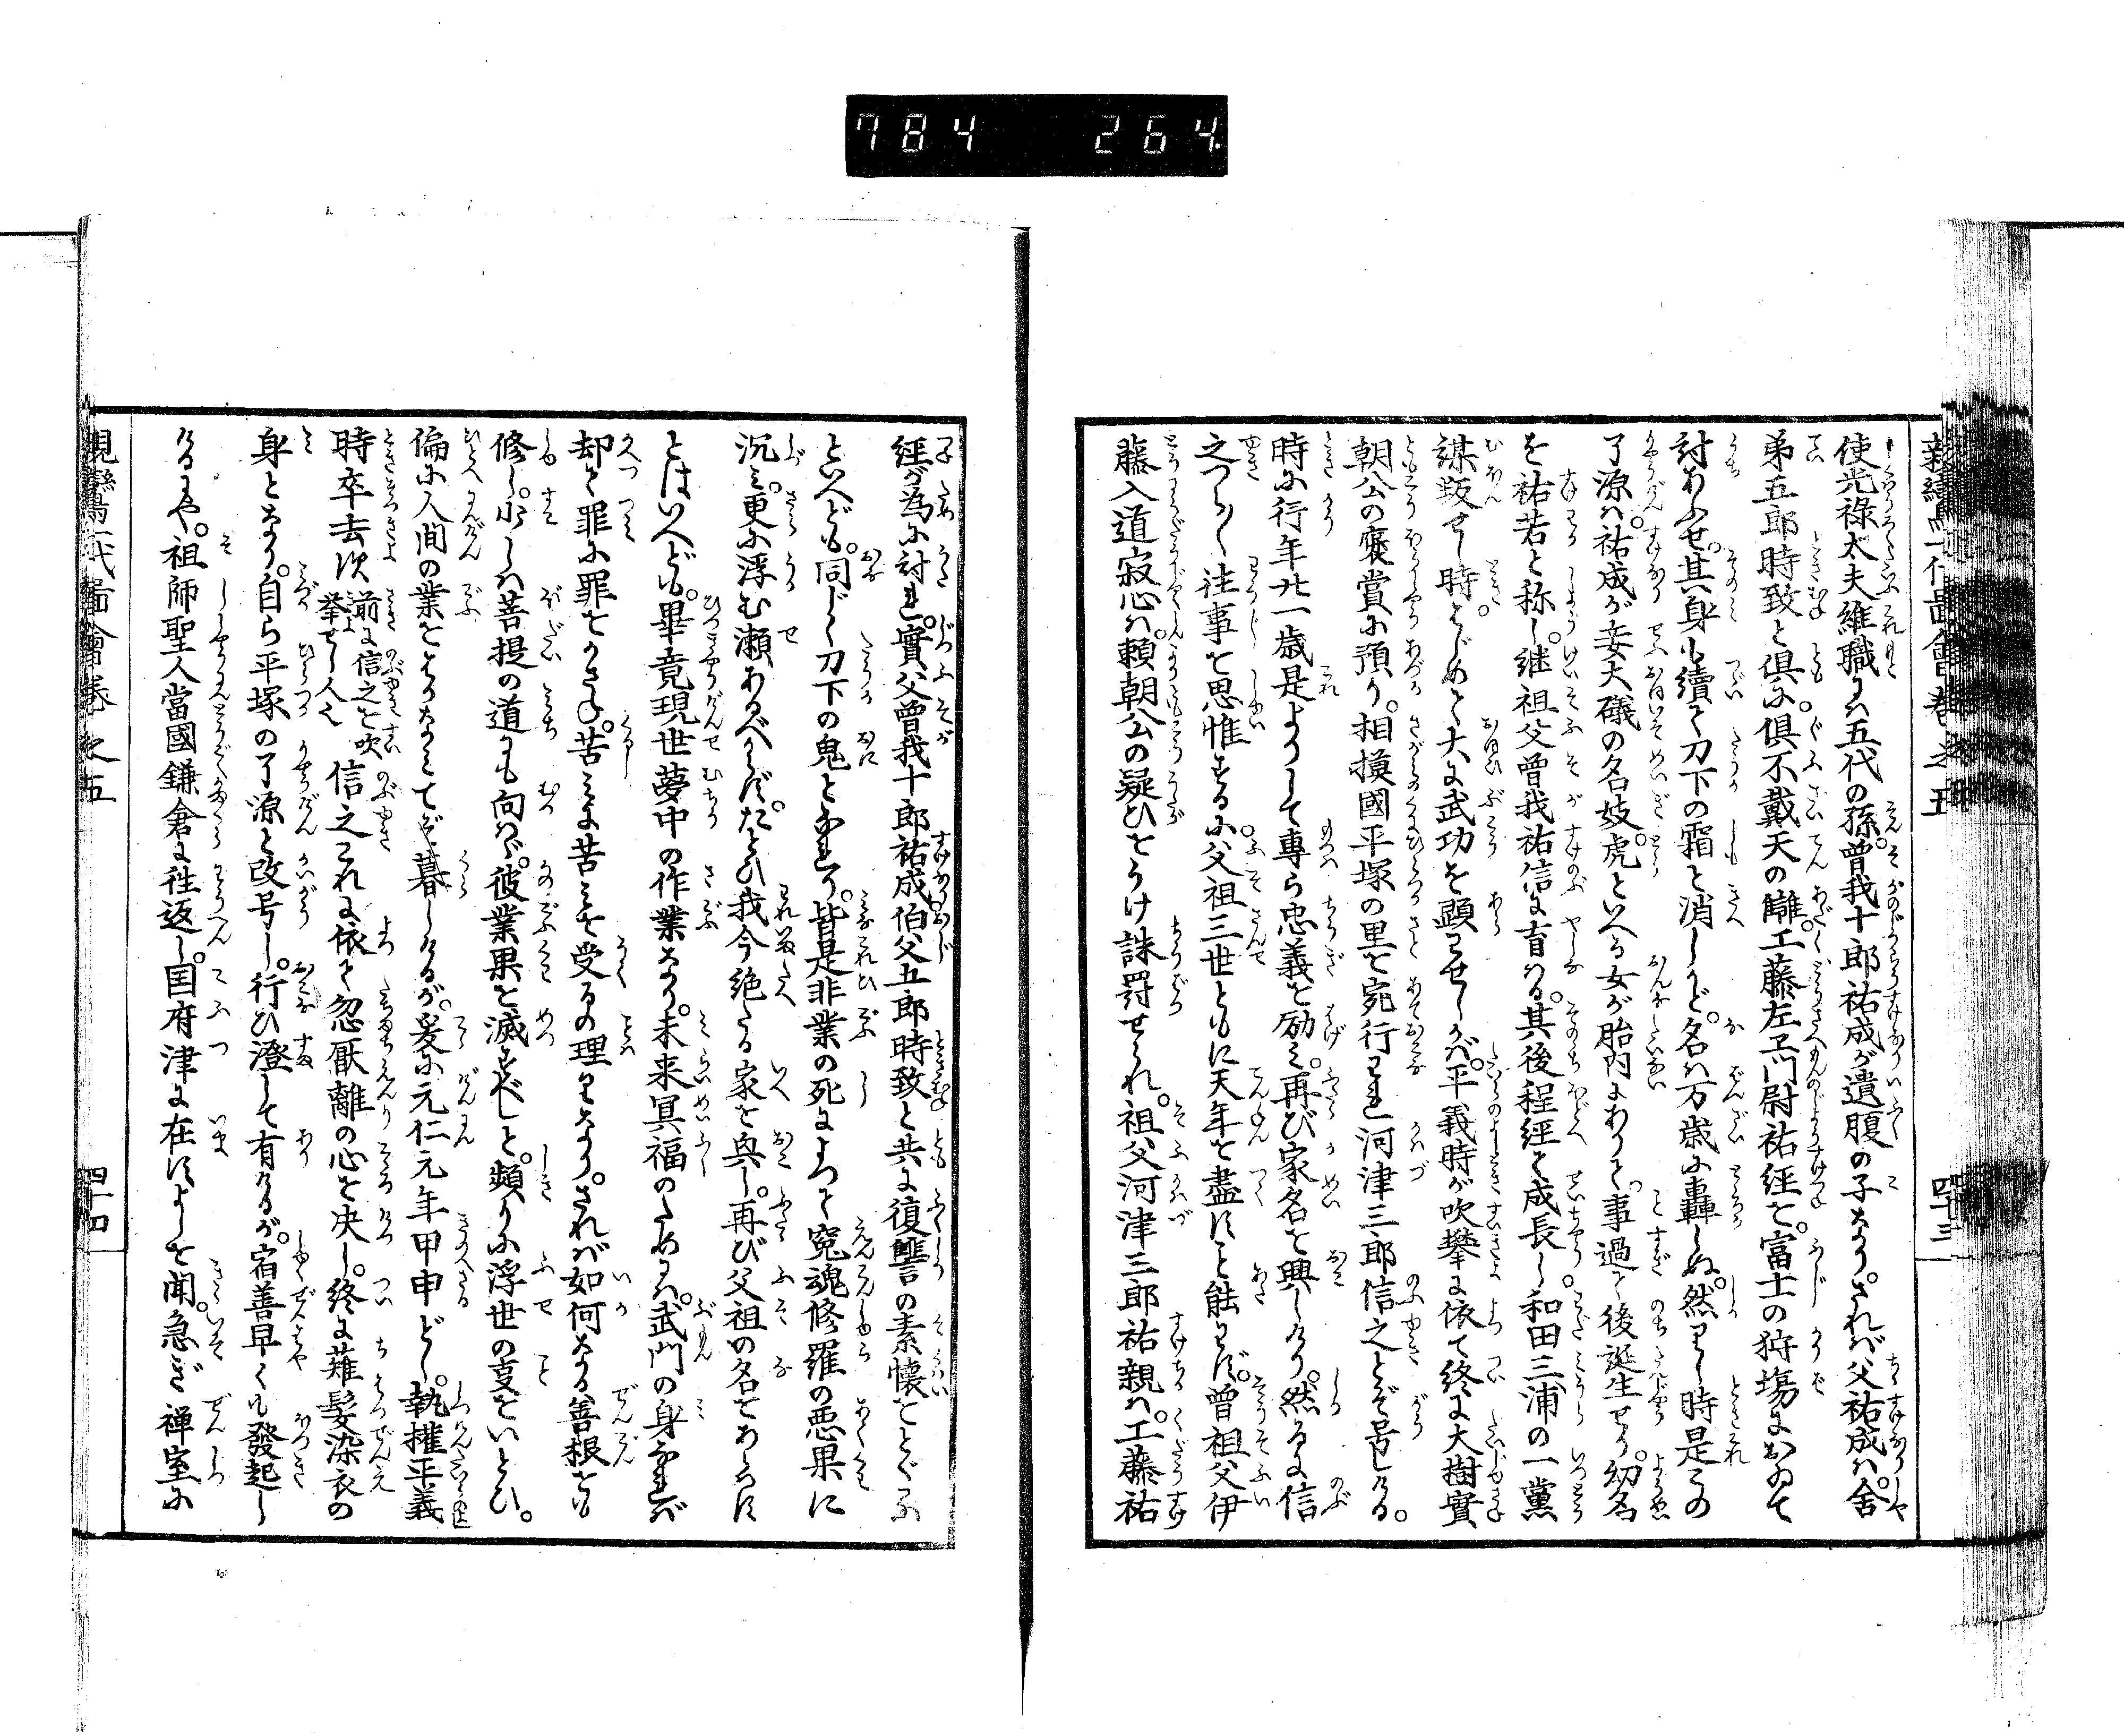 784 264
親鸞聖人一代啚會巻之五
四十三
使光祿太夫維職には五代の孫。曽我十郎祐成が遺腹の子なり。されば父祐成は。舎
弟五郎時致と倶に。倶不戴天の讎。工藤左ヱ門尉祐経を。富士の狩塲におゐて
討あふせ。其身も續て刀下の霜と消しかど。名は万歳に轟しぬ。然りし時是この
了源は。祐成が妾大磯の名妓。虎といへる女が胎内にありて。事過て後誕生せり。幼名
を祐若と称し。継祖父曽我祐信に育はる。其後程経て成長し和田三浦の一黨
謀叛せし時。はじめて大に武功を顕はせしかば。平義時が吹挙に依て終に大樹實
朝公の褒賞に預り。相摸國平塚の里を宛行はれ河津三郎信之とぞ号しける。
時に行年廿一歳是よりして專ら忠義を励み。再び家名を興しけり。然るに信
之つら〱徃事を思惟するに。父祖三世ともに天年を盡すこと能はず。曽祖父伊
藤入道寂心は。頼朝公の疑ひをうけ誅罸せられ。祖父河津三郎祐親は。工藤祐
経が為に討れ。實父曽我十郎祐成伯父五郎時致と共に復讐の素懐をとぐる
といへども。同じく刀下の鬼となれり。皆是非業の死によつて寃魂修羅の悪果に
沉み。更に浮む瀬あるべからず。たとひ我今絶たる家を興し。再び父祖の名をあらはす
とはいへども。畢竟現世夢中の作業なり。未来冥福のためには。武門の身なれば
却て罪に罪をかさね。苦みに苦みを受るの理りなり。されば如何なる善根をも
修し。少しは菩提の道にも向はゞ。彼業果を滅すべしと。頻りに浮世の㕝をいとひ。
偏に人間の業をはかなみてぞ暮しける が。爰に元仁元年甲申どし。執權平義
時卒去す 前に信之を吹挙せし人也 信之これに依て忽厭離の心を决し。終に薙髪染衣の
身となり。自ら平塚の了源と改号し。行ひ澄して有けるが。宿善早くも發起し
けるにや。祖師聖人當國鎌倉に徃返し。国府津に在すよしを聞。急ぎ禅室に
親鸞聖人一代啚會巻之五
四十四